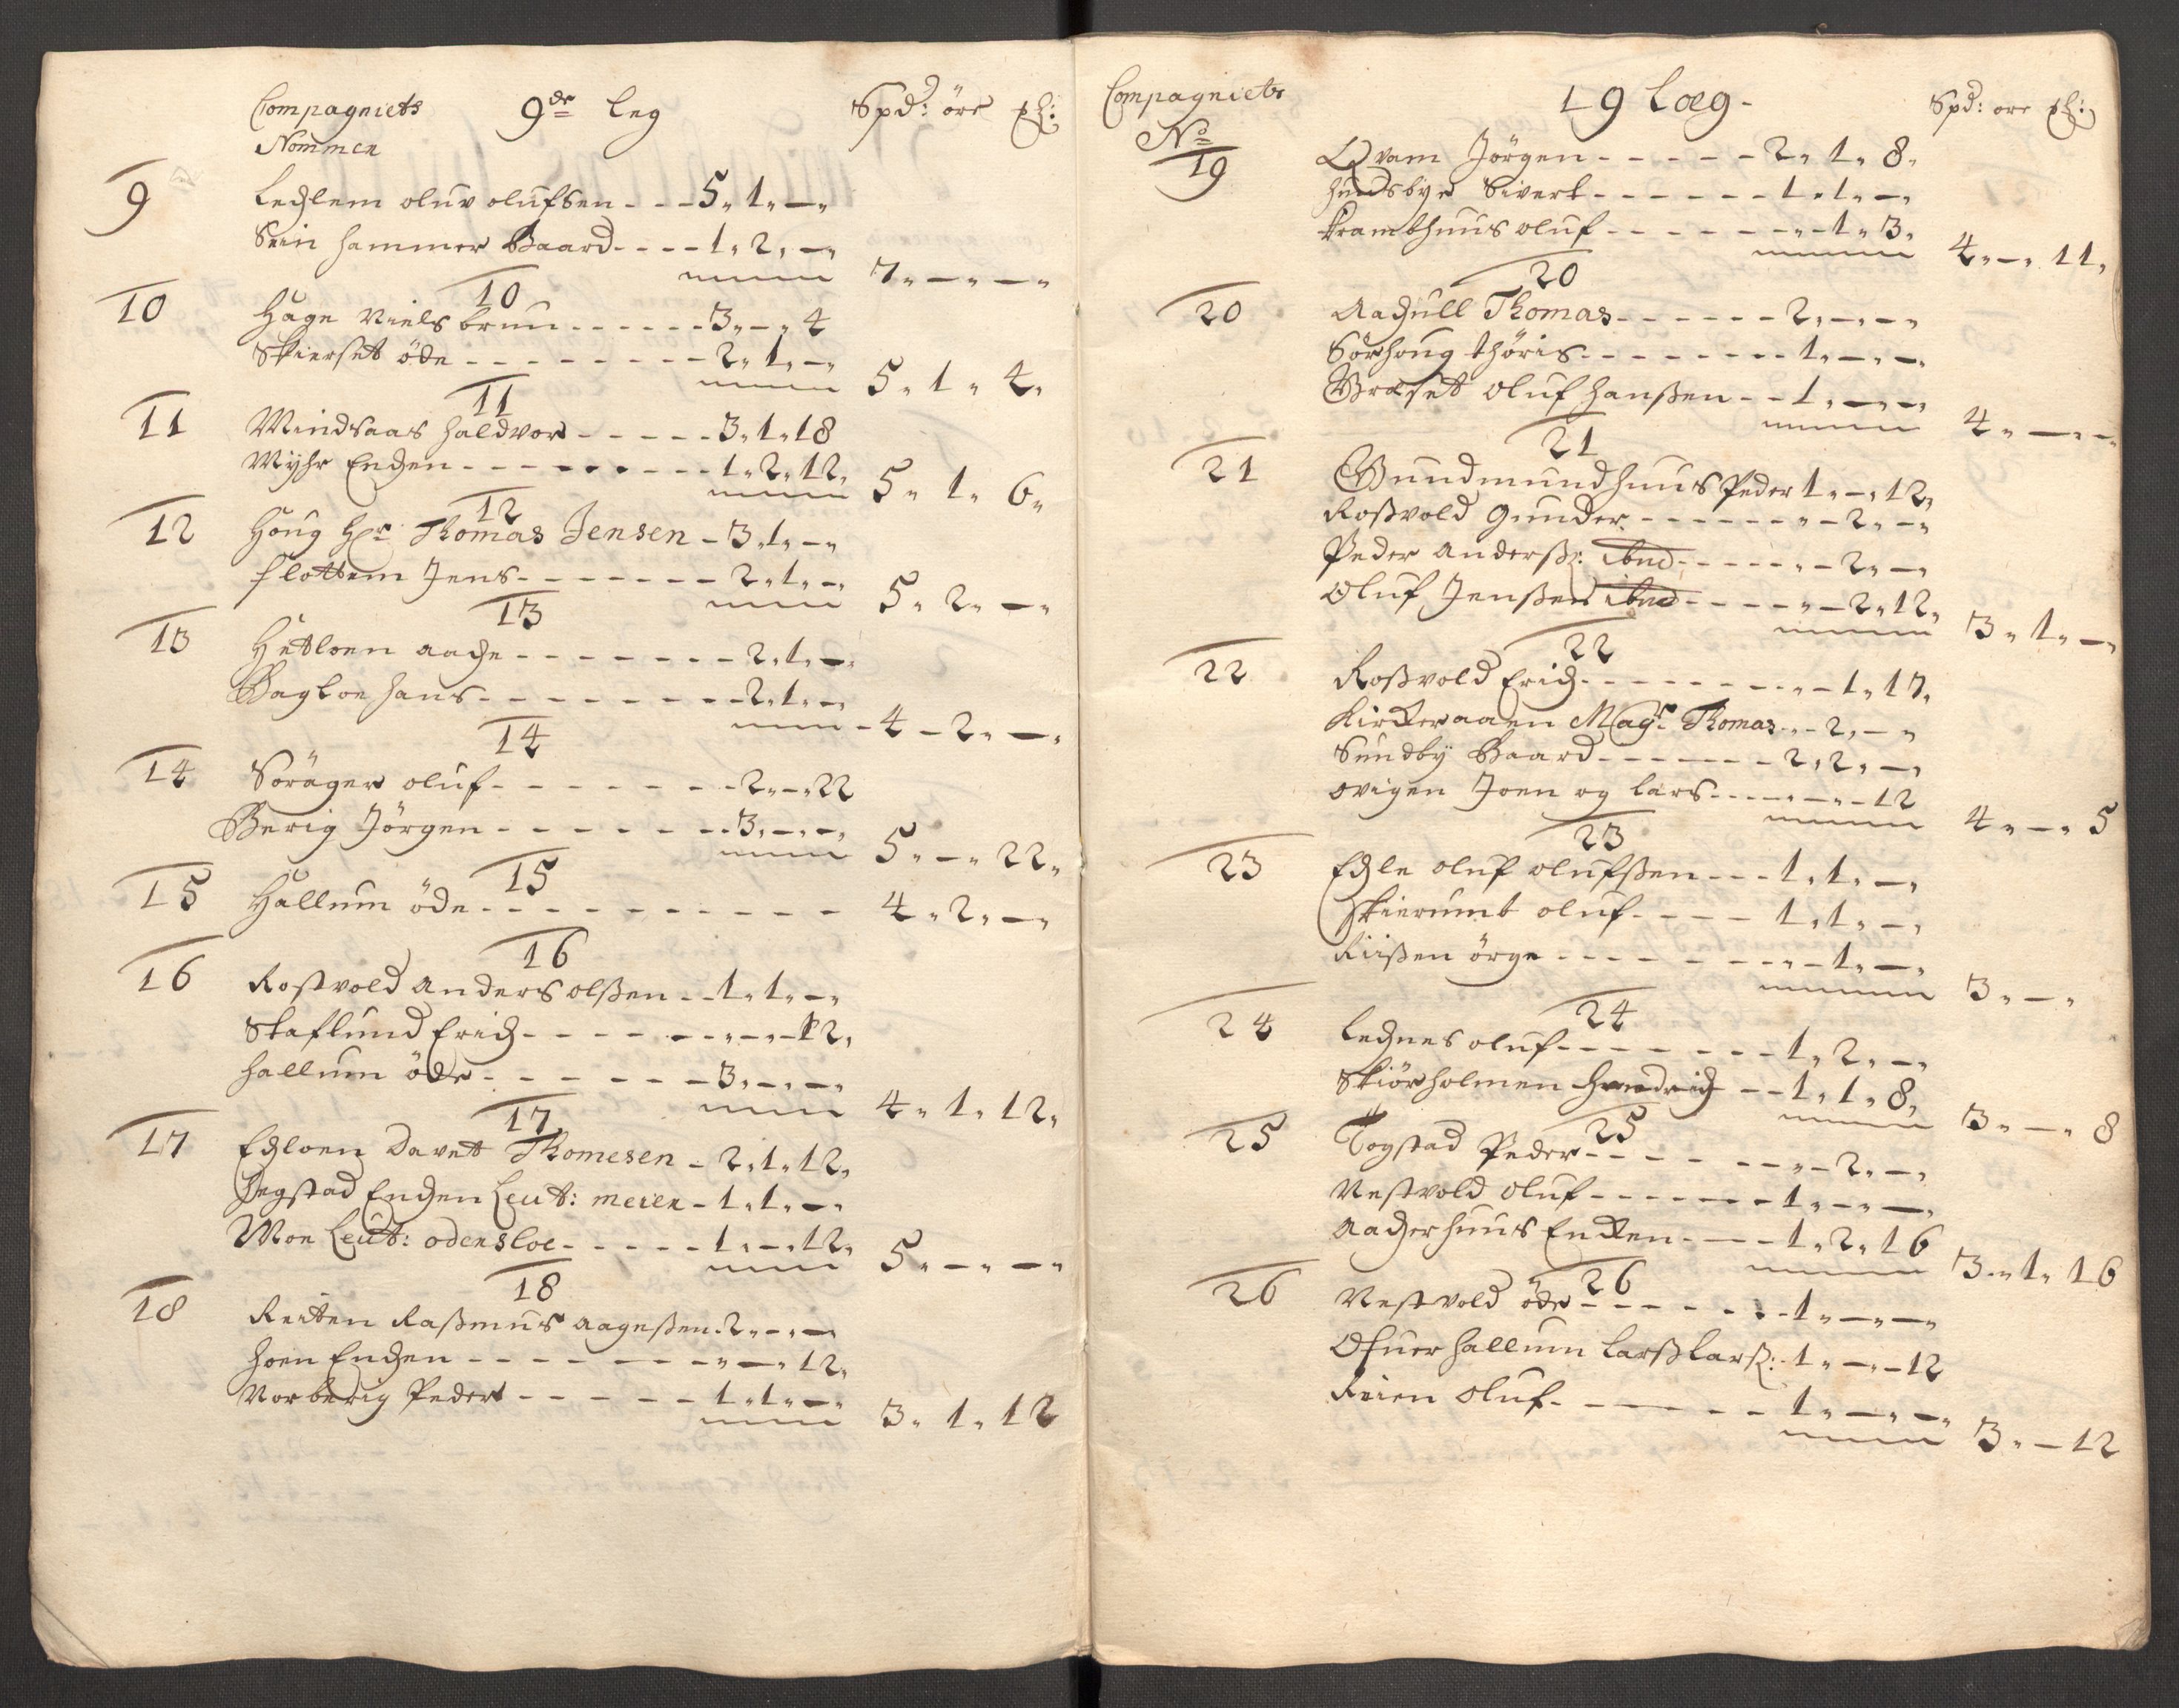 Compagniets 9de Leg Spd: öre ℔:
Nommer
9 Lechlem oluv olufsen - - - 5 " 1 " — "
Stinhammer Baard - - - - 1 " 2 " — "
7 " — " — "
10
10 Hage Niels brun - - - - - - 3 " — " 4
Skierset öde - - - - - - - - - 2 " 1 " — "
5 " 1 " 4 "
11
11 Mindsaas Haldvor - - - - - 3 " 1 " 18
Myhr Enchen - - - - - - - - - 1 " 2 " 12 "
5 " 1 " 6 "
12
12 Houg Hr: Thomas Jensen - 3 " 1 " — "
flottem Jens - - - - - - - 2 " 1 " — "
5 " 2 " — "
13
13 Hetloen aage - - - - - - - 2 " 1 " — "
Bagloe Hans - - - - - - - - 2 " 1 " — "
4 - 2 " — "
14
14 Soräger oluf - - - - - - - 2 " — " 22
Berig Jörgen - - - - - - - 3 " — " — "
5 " — " 22 "
15
15 Hallum öde - - - - - - - - - - 4 " 2 " — "
16
16 Rostvold Anders olßen - - 1 " 1 " — "
Skaflund Erich - - - - - - " — " — 12 "
Hallum öde - - - - - - - 3 " — " — "
4 " 1 " 12 "
17
17 Echloen Davet Thomesen - 2 " 1 " 12 "
Hegstad Enchen Leut: meier - 1 " 1 " — "
Moe Leut: odensloe - - - - - 1 " — " 12 "
5 " — " — "
18
18 Reiten Raßmus aageßen - 2 " — " —
Hoen Enchen - - - - - - - - " — " 12 "
Norberig Peder - - - - - 1 " 1 " — "
3 " 1 " 12
Compagniets 19 Læg - Spd: ore ℔:
No
19 Qvam Jörgen - - - - - 2 " 1 " 8 "
Hundsbye Sivert - - - - - - 1 " 1 " — "
Kramthuus oluf - - - - - - " — 1 " 3 "
4 " — " 11 "
20
20 Aachull Thomas - - - - - - 2 " — " — "
Sörhoug Thöris - - - - - - - - 1 " — " — "
Græset oluf Hanßen - - 1 " — " — "
4 " — " —
21
21 Gundmundhuus Peder 1 " — " 12 "
Roßvold Gunder - - - - - - - " — 2 " — "
Peder anderß: ibnd - - - - - " — 2 " — "
Oluf Jenßen ibnd - - - - " — 2 " 12 "
3 " 1 " — "
22
22 Roßvold Erich - - - - - - - - " — 1 " 17 "
Kirkeraaen Magr: Thomas - " — 2 " — "
Sundby Baard - - - - - - 2 " 2 " — "
ovigen Joen og Lars - - - " — " — 12
4 " — " 5
23
23 Echle oluf olufßen - - - 1 " 1 " — "
Skierumb oluf - - - - 1 " 1 " — "
Riißen örge - - - - - - - " — 1 " — "
3 " — "
24
24 Lechnes oluf - - - - - - - 1 " 2 " — "
Skiörholmen Hendrich - - 1 " 1 " 8 "
3 " — " 8
25
25 Togstad Peder - - - - - - " — 2 " — "
Nestvold oluf - - - - - - - 1 " — " — "
Aagerhuus Encken - - - - 1 " 2 " 16
3 " 1 " 16
26
26 Nestvold öde - - - - - - - 1 " — " — "
Ofuer Hallum Larß Larß: - 1 " — " — 12
Reien oluf - - - - - - 1 " — " — "
3 " — 12